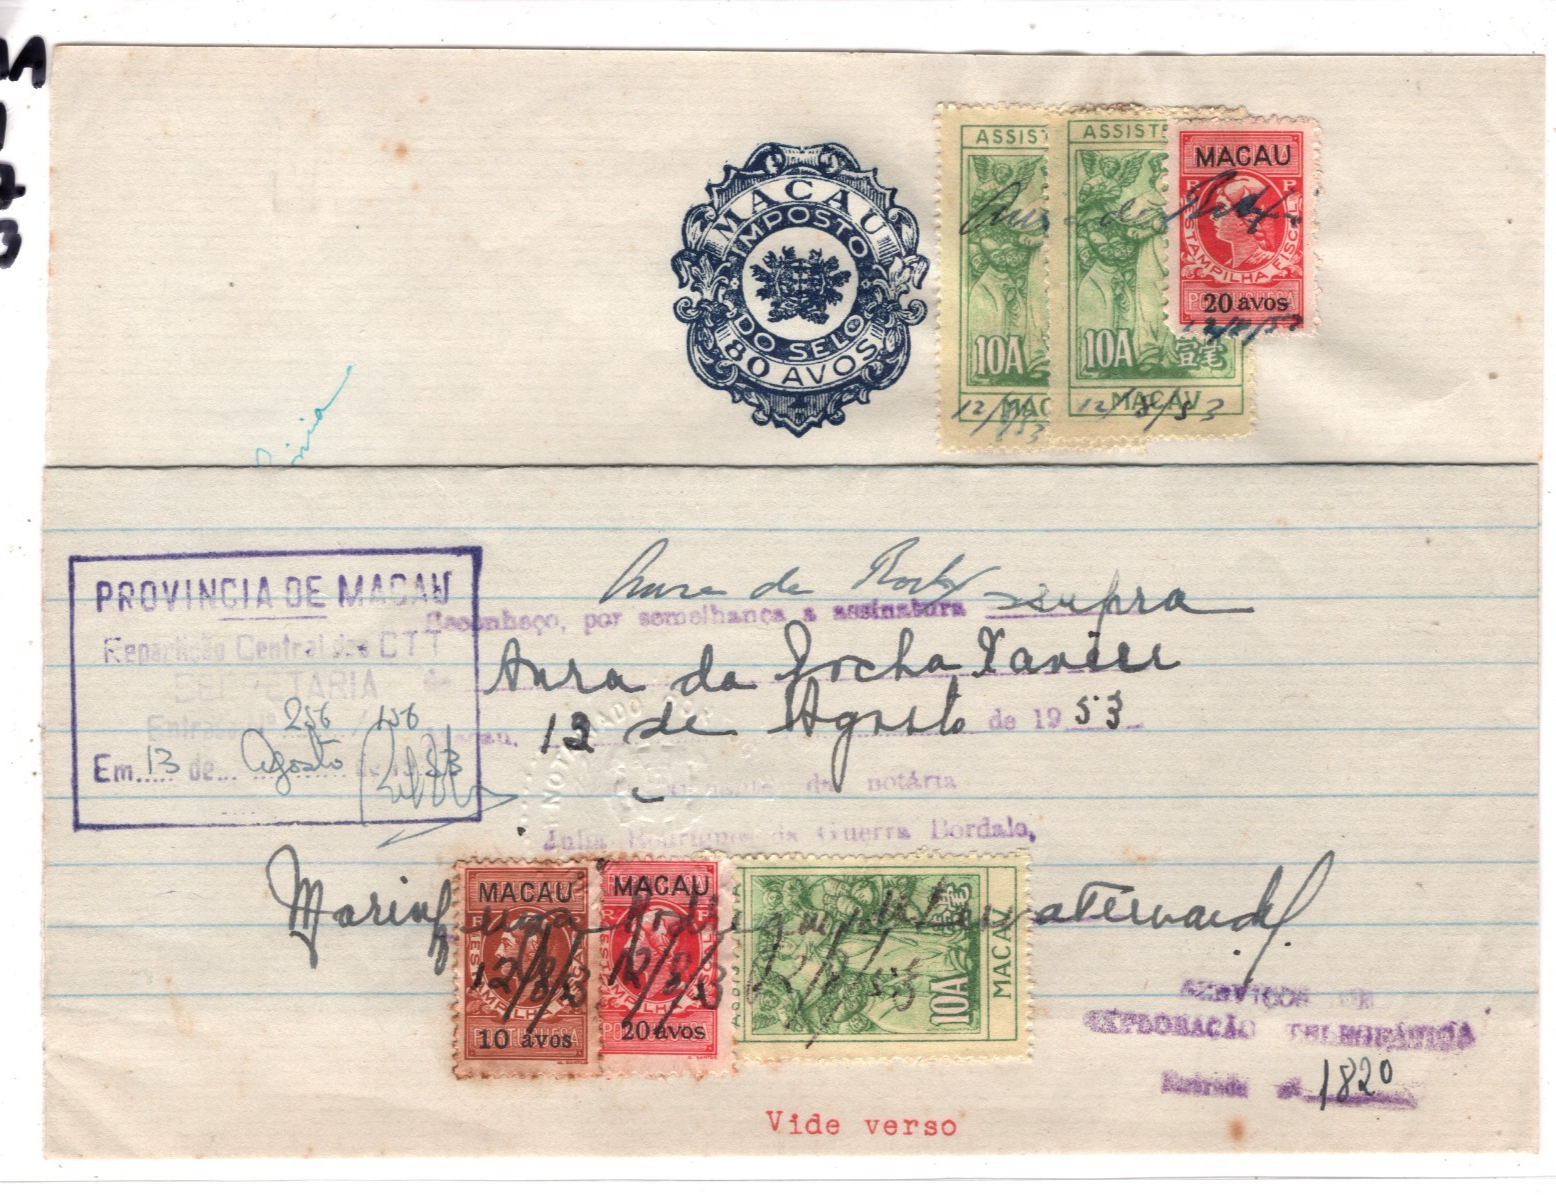 MACAU
IMPOSTO
DO SELO
80 AVOS
ASSIST
10A
MACAU
12/8/53
ASSISTE
10A 壹毫
MACAU
12/8/53
MACAU
REPÚBLICA
ESTAMPILHA FISCAL
PORTUGUESA
20 avos
12/8/53
PROVINCIA DE MACAU
Repartição Central dos CTT
SECRETARIA
Entrada Nº 256 / 156
Em 13 de Agosto de 1953
Aura da Rocha
Reconheço, por semelhança a assinatura supra
de Aura da Rocha Xavier
Macau, 12 de Agosto de 1953
NOTARIADO POR
da notária
Julia Rodrigues da Guerra Bordalo,
MACAU
10 avos
12/8/53
MACAU
20 avos
12/8/53
10A
MACAU
12/8/53
SERVIÇOS DE
EXPLORAÇÃO TELEFÓNICA
Entrada nº 1820
Vide verso